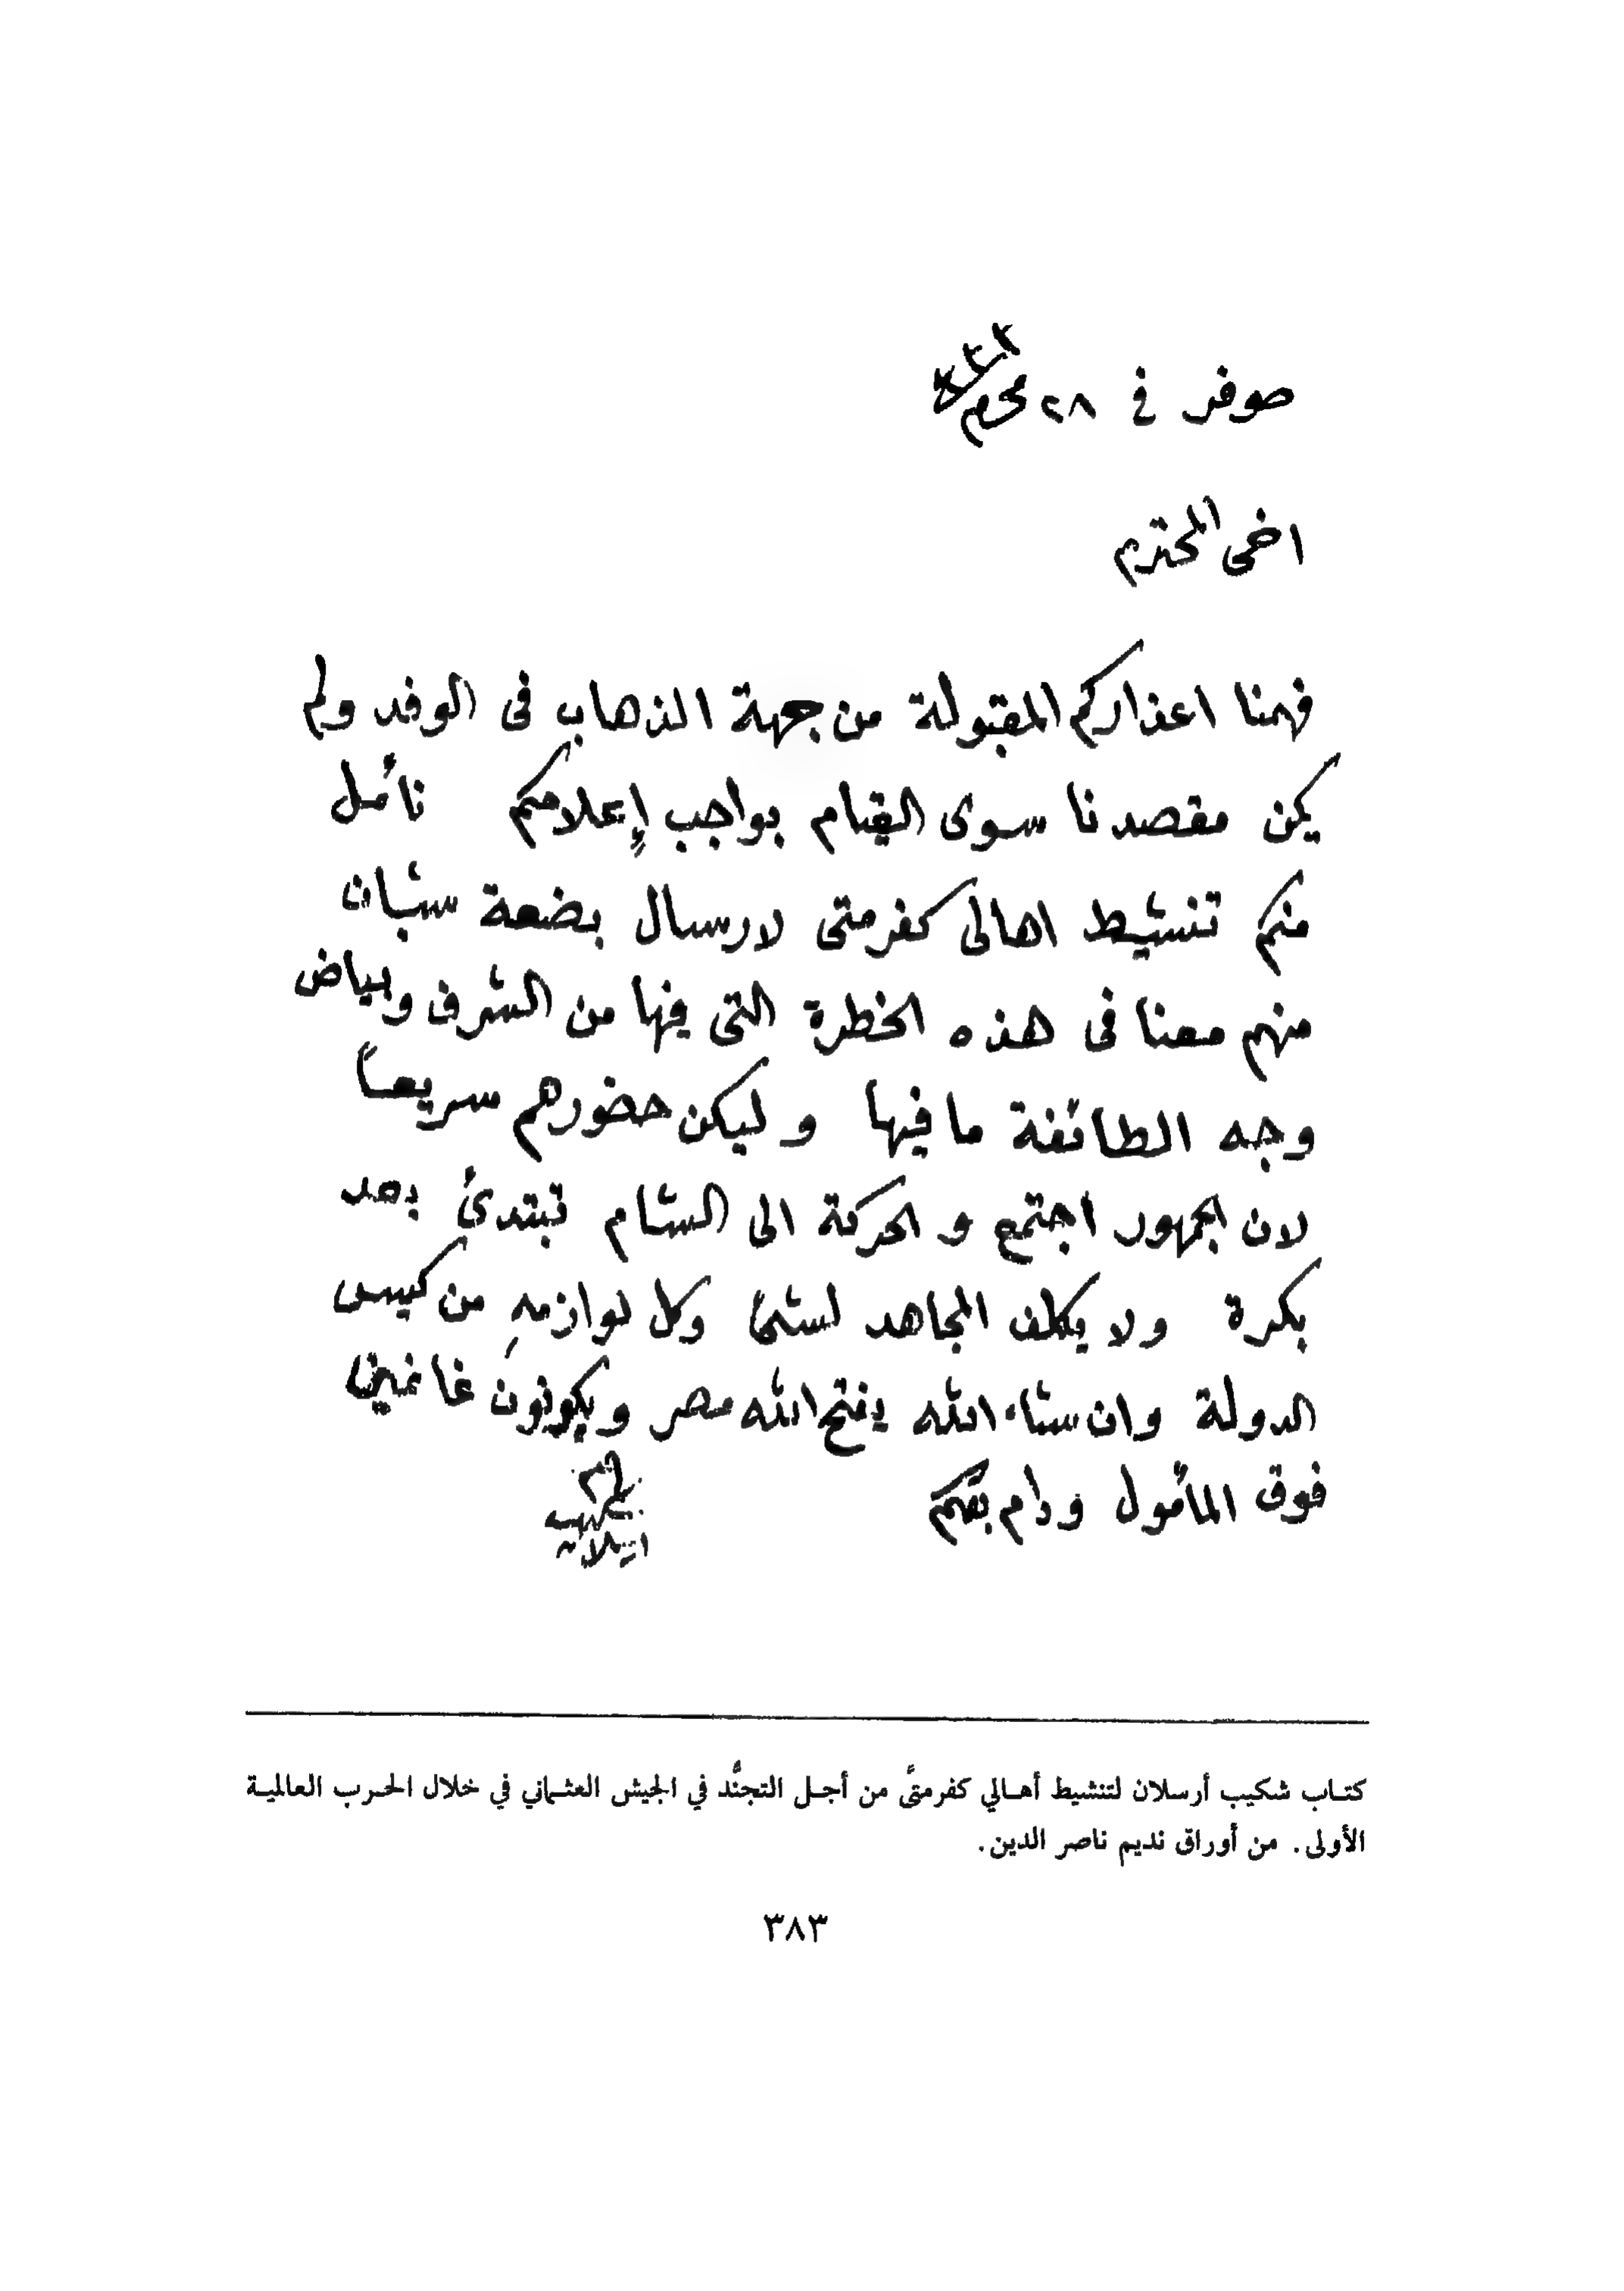 صوفر في ٢٨ محرم
اخى المحترم
فهمنا اعذاركم المقبولة من جهة الذهاب فى الوفد ولم
يكن مقصدنا سوى القيام بواجب إعلامكم نأمل
منكم تنشيط اهالى كفرمتى لارسال بضعة شبّان
منهم معنا فى هذه الخطرة التى فيها من الشرف وبياض
وجه الطائفة ما فيها وليكن حضورهم سريعاً
لان الجمهور اجتمع والحركة الى الشام تبتدئ بعد
بكرة ولا يكلف المجاهد لشئ وكل لوازمهِ من كيس
الدولة وان شاء الله يفتح الله مصر ويكونون غانمين
فوق المأمول ودام بقكم
شكيب
ارسلان
كتـاب شكيب أرسلان لتنشيط أهـالي كفرمتَّى من أجـل التجنُّد في الجيش العثـماني في خلال الحـرب العالميـة
الأولى. من أوراق نديم ناصر الدين.
٣٨٣